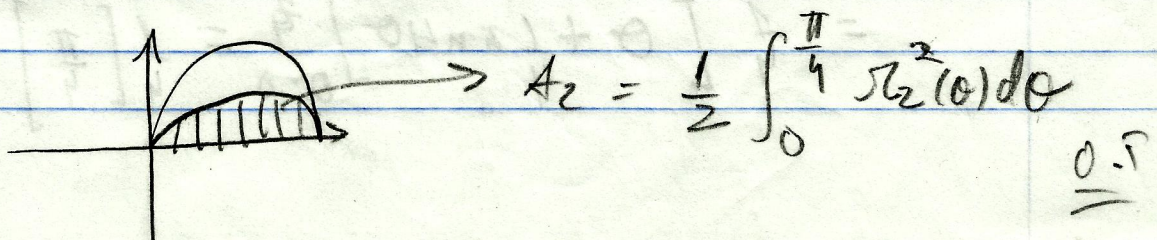 A₂ = 1/2 ∫₀^{π/4} r₂²(θ)dθ
0.5